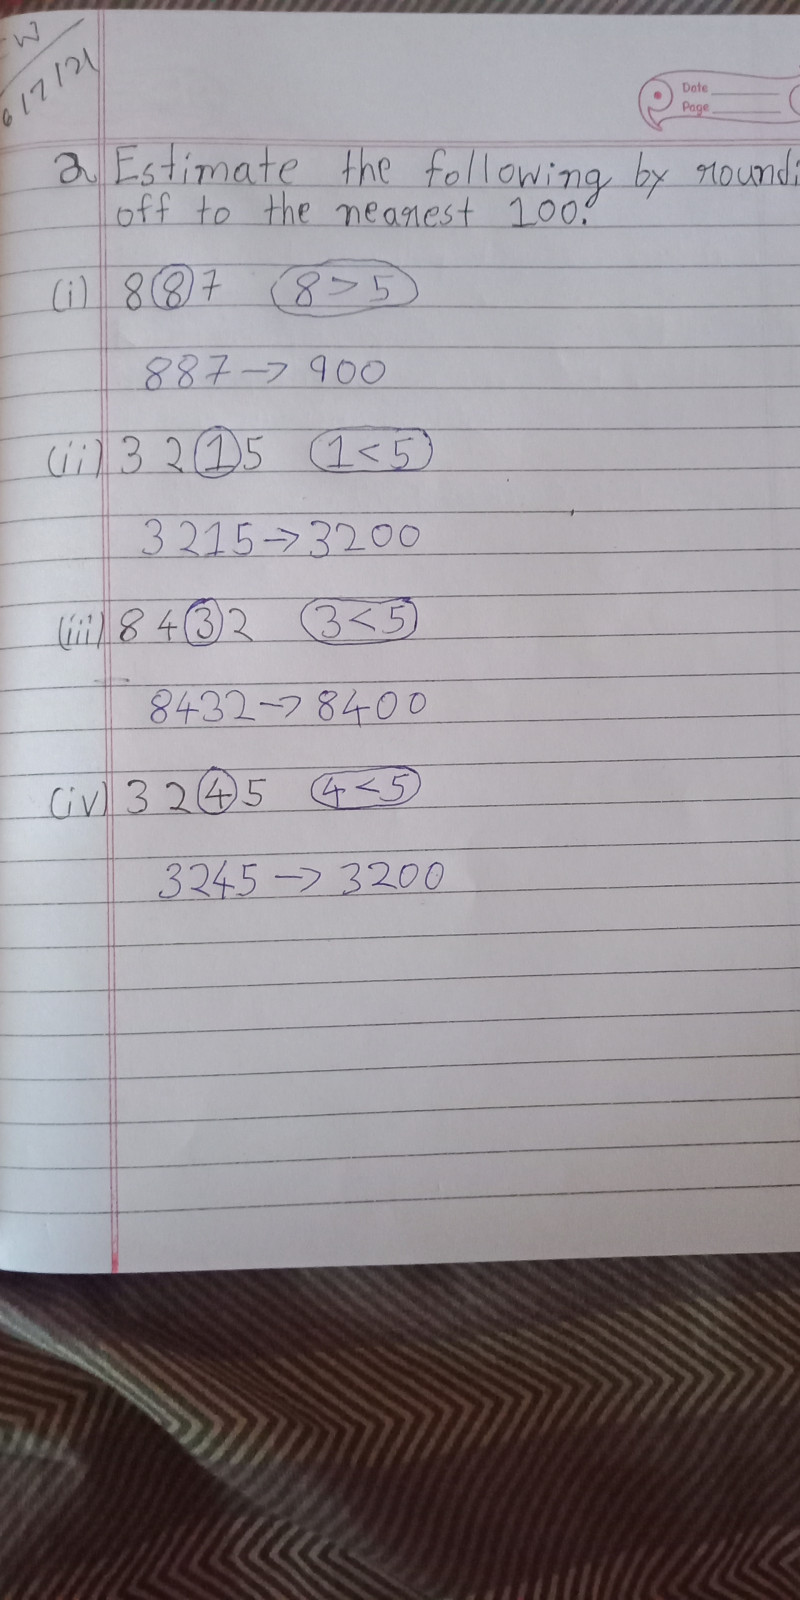 W
6/7/21
Date
Page
2 Estimate the following by roundi
off to the nearest 100.
(i) 887 8>5
887→900
(ii) 3215 1<5
3215→3200
(iii) 8432 3<5
8432→8400
(iv) 3245 4<5
3245→3200